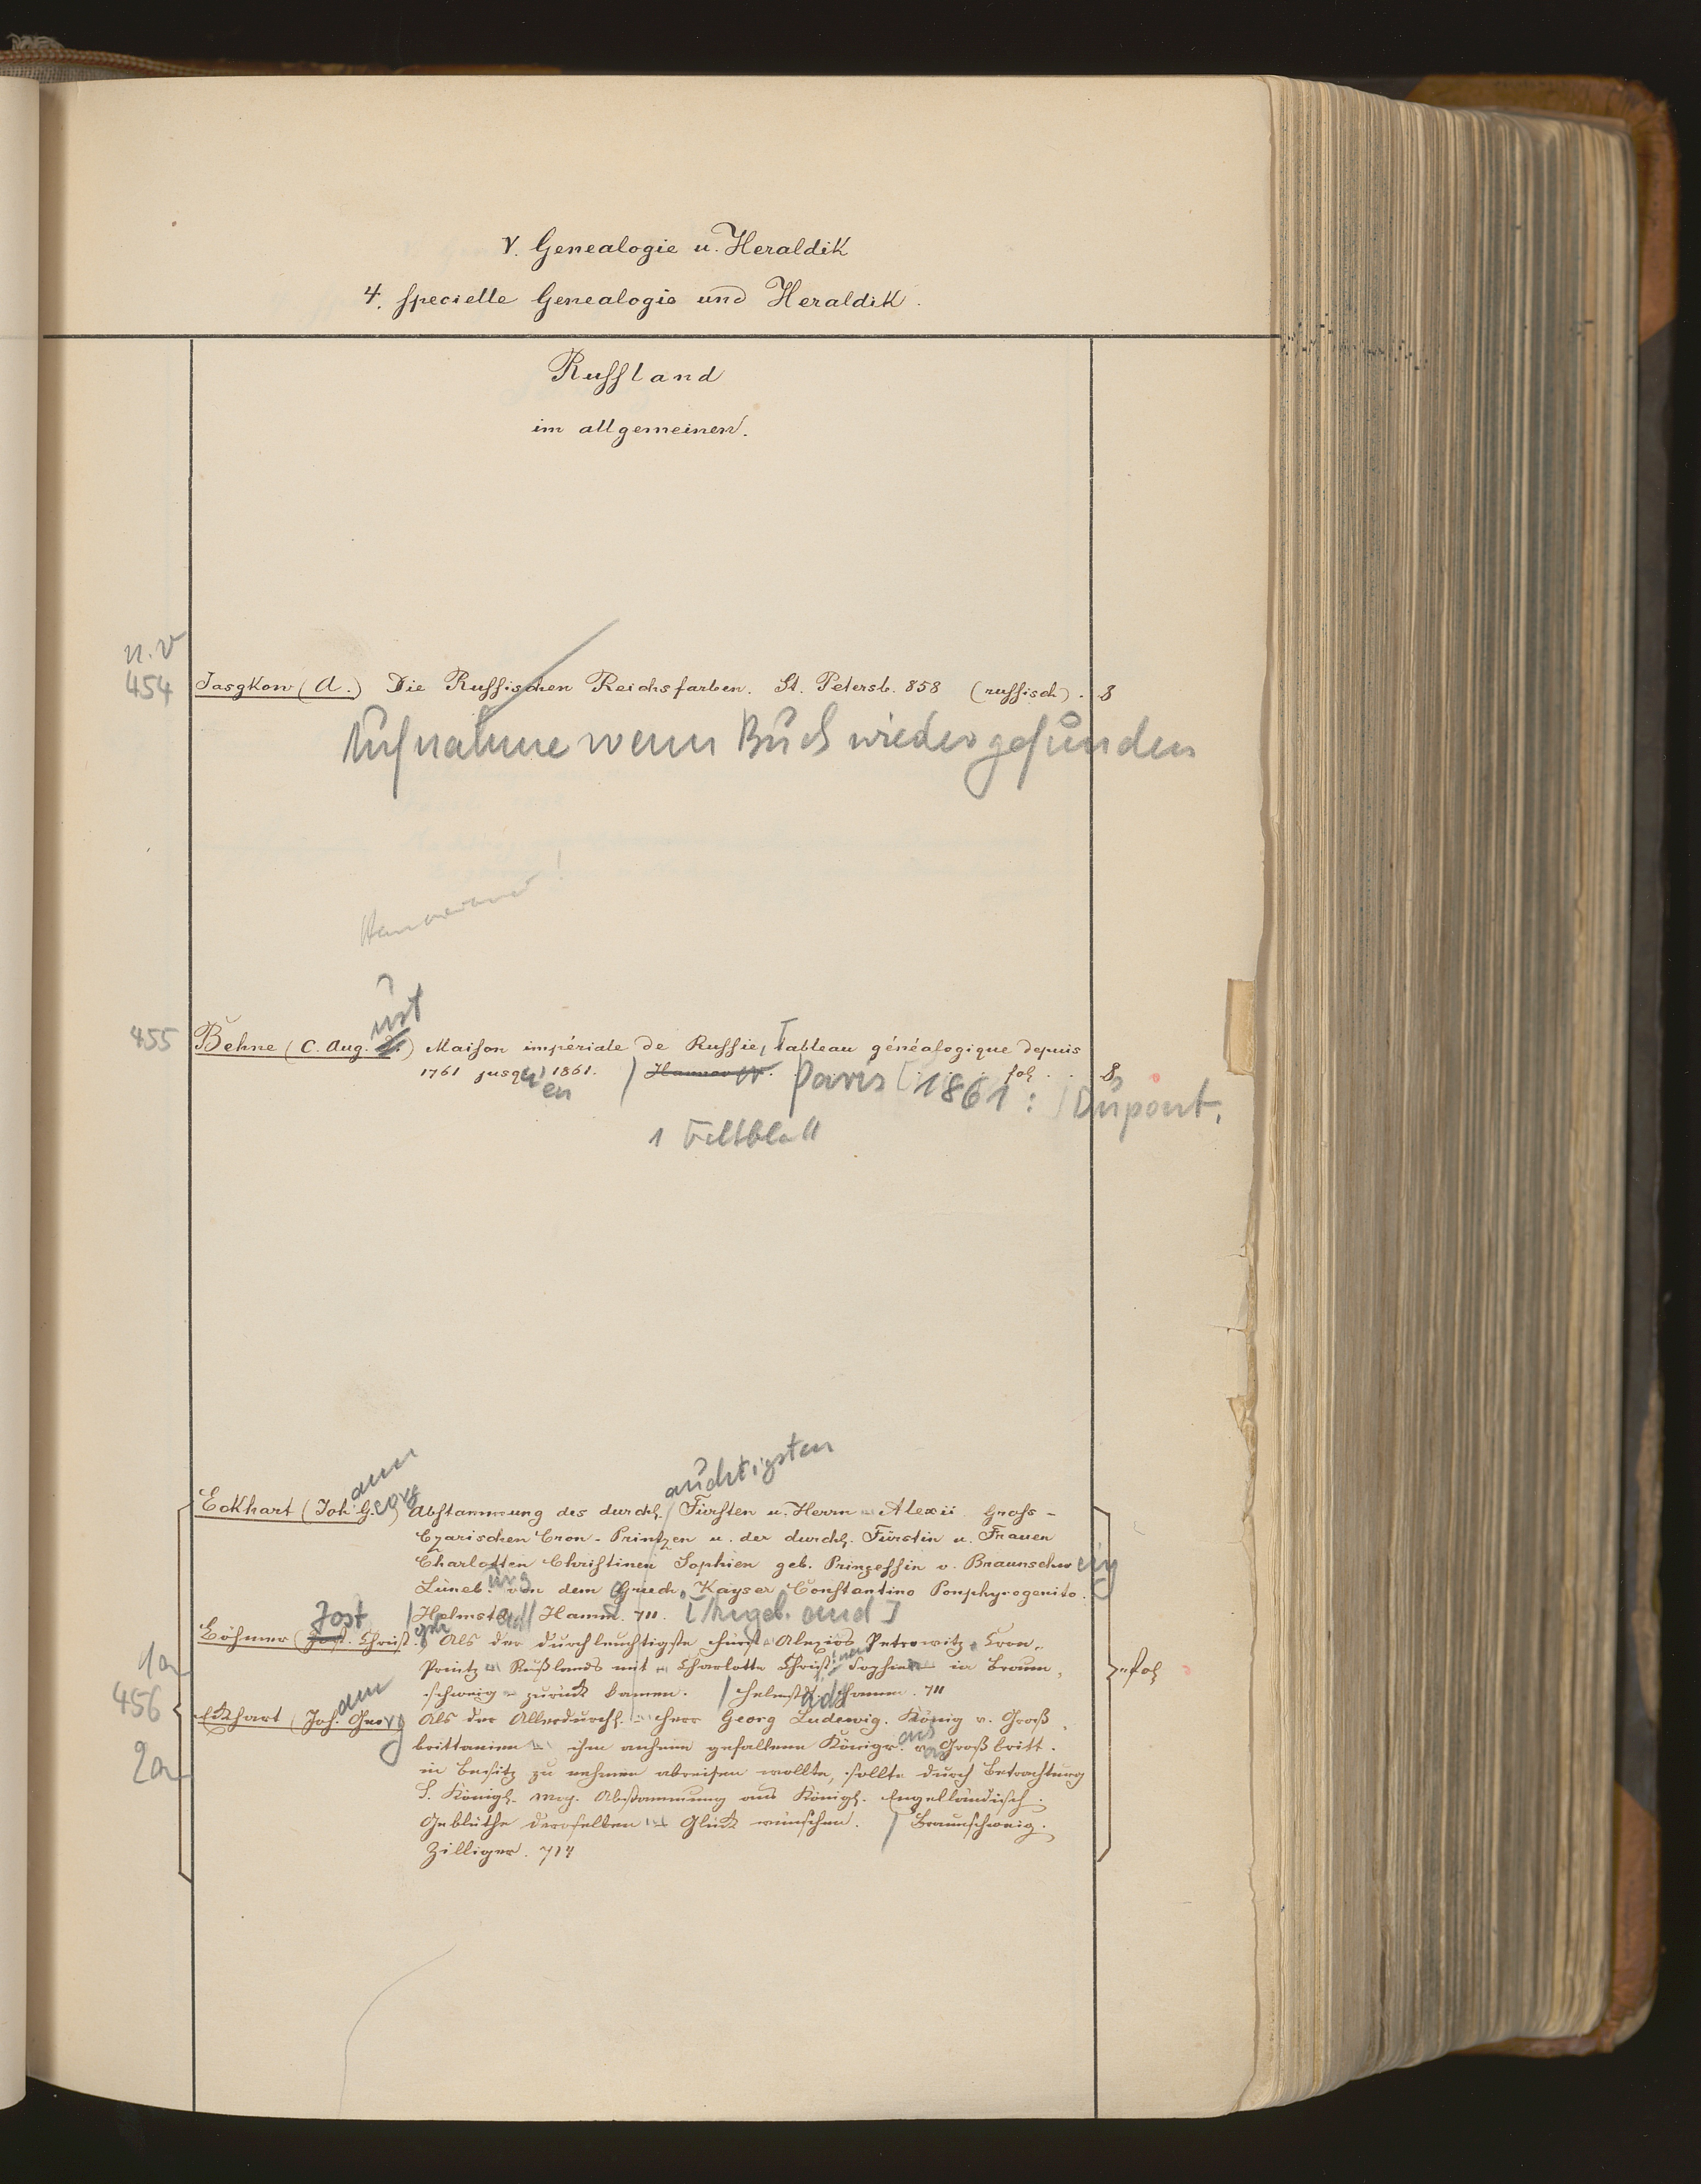 V. Genealogie u. Heraldik
4. specielle Genealogie und Heraldik.
Russland
im allgemeinen.
n.v
454 Jasgkow (A.) Die Russischen Reichsfarben. St. Petersb. 858 (russisch). 8
Aufnahme wenn Buch wiedergefunden
ust
455 Behne (C. Aug. ) Maison impériale de Russie, Tableau généalogique depuis
1761 jusqu'en 1861. / Hannover. Paris [1861: Dupont. fol. 8
1 Faltblatt
ann auchtigsten
Eckhart (Joh. Georg) Abstammung des durchl. / Fürsten u. Herrn Alexii Gross-
Czarischen Cron-Printzen u. der durchl. Fürstin u. Frauen
Charlotten Christinen Sophien geb. Prinzessin v. Braunschweig
Lüneburg von dem Griech. Kayser Constantino Porphyrogenito.
/ Helmstädt Hamm. 711. [Angeb. and]
Jost
Böhmer (Just. Christoph) Als der durchleuchtigste Fürst Alexios Petrowitz Cron-
Printz Rußlands mit Charlotte Christinen Sophien in Braun-
schweig zurück kamen. / Helmstädt Hamm. 711
1an
456
2an
Ekhart (Johann Georg Als der Allerdurchl. Herr Georg Ludewig. König v. Groß
brittanien ihm anheim gefallene Königr. Groß britt.
in Besitz zu nehmen abreisen wollte, sollte durch Betrachtung
S. Königl. May. Abstammung aus Königl. Engelländisch.
Geblüthe deroselben Glück wünschen. / Braunschweig.
Zilliger. 714
fol